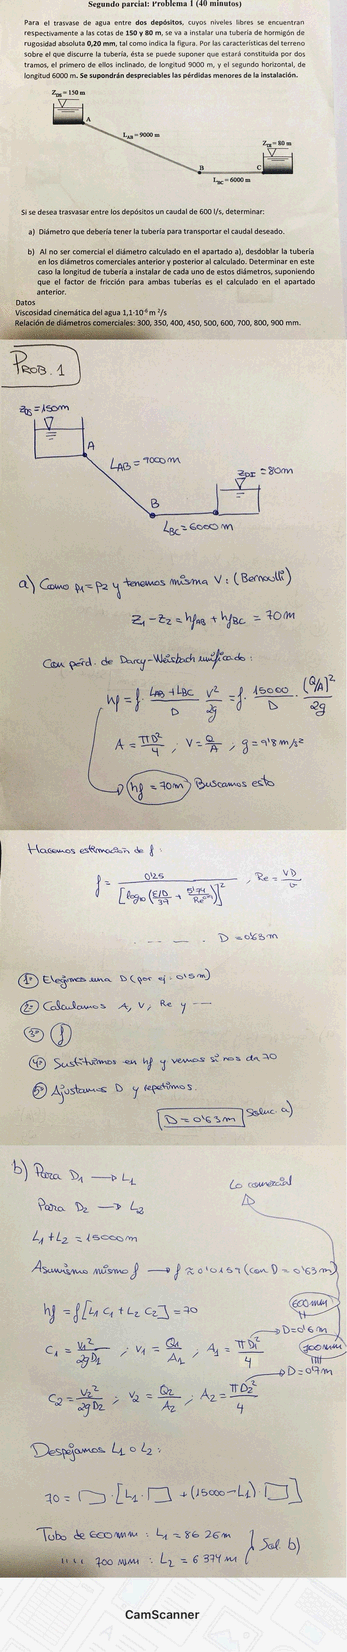 Segundo parcial: Problema 1 (40 minutos)
Para el trasvase de agua entre dos depósitos, cuyos niveles libres se encuentran
respectivamente a las cotas de 150 y 80 m, se va a instalar una tubería de hormigón de
rugosidad absoluta 0,20 mm, tal como indica la figura. Por las características del terreno
sobre el que discurre la tubería, ésta se puede suponer que estará constituida por dos
tramos, el primero de ellos inclinado, de longitud 9000 m, y el segundo horizontal, de
longitud 6000 m. Se supondrán despreciables las pérdidas menores de la instalación.
Z_DS = 150 m
A
L_AB = 9000 m
Z_DI = 80 m
B
C
L_BC = 6000 m
Si se desea trasvasar entre los depósitos un caudal de 600 l/s, determinar:
a) Diámetro que debería tener la tubería para transportar el caudal deseado.
b) Al no ser comercial el diámetro calculado en el apartado a), desdoblar la tubería
en los diámetros comerciales anterior y posterior al calculado. Determinar en este
caso la longitud de tubería a instalar de cada uno de estos diámetros, suponiendo
que el factor de fricción para ambas tuberías es el calculado en el apartado
anterior.
Datos
Viscosidad cinemática del agua 1,1·10⁻⁶ m²/s
Relación de diámetros comerciales: 300, 350, 400, 450, 500, 600, 700, 800, 900 mm.
PROB. 1
Z_DS = 150m
A
L_AB = 9000m
Z_DI = 80m
B
L_BC = 6000m
a) Como p1 = p2 y tenemos misma V: (Bernoulli)
Z1 - Z2 = hf_AB + hf_BC = 70m
Con pérd. de Darcy-Weisbach unificado:
hf = f · (L_AB + L_BC)/D · V²/2g = f · 15000/D · (Q/A)²/2g
A = πD²/4 ; V = Q/A ; g = 9'8 m/s²
hf = 70m Buscamos esto
Hacemos estimación de f:
f = 0'25/[log10 (E/D/3'7 + 5'74/Re^0'9)]² , Re = VD/υ
D = 0'63m
1º Elegimos una D (por ej. 0'5m)
2º Calculamos A, V, Re y ---
3º f
4º Sustituimos en hf y vemos si nos da 70
5º Ajustamos D y repetimos.
D = 0'63m Soluc. a)
b) Para D1 → L1
Para D2 → L2
Lo comercial
L1 + L2 = 15000m
Asumimos mismo f → f ≈ 0'0157 (con D = 0'63m)
hf = f[L1 C1 + L2 C2] = 70
600mm
D = 0'6m
C1 = V1²/2gD1 ; V1 = Q1/A1 ; A1 = πD1²/4
700mm
D = 0'7m
C2 = V2²/2gD2 ; V2 = Q2/A2 ; A2 = πD2²/4
Despejamos L1 o L2:
70 = □ · [L1 · □ + (15000 - L1) · □]
Tubo de 600mm : L1 = 8626m
'' '' 700 mm : L2 = 6374m
Sol. b)
CamScanner